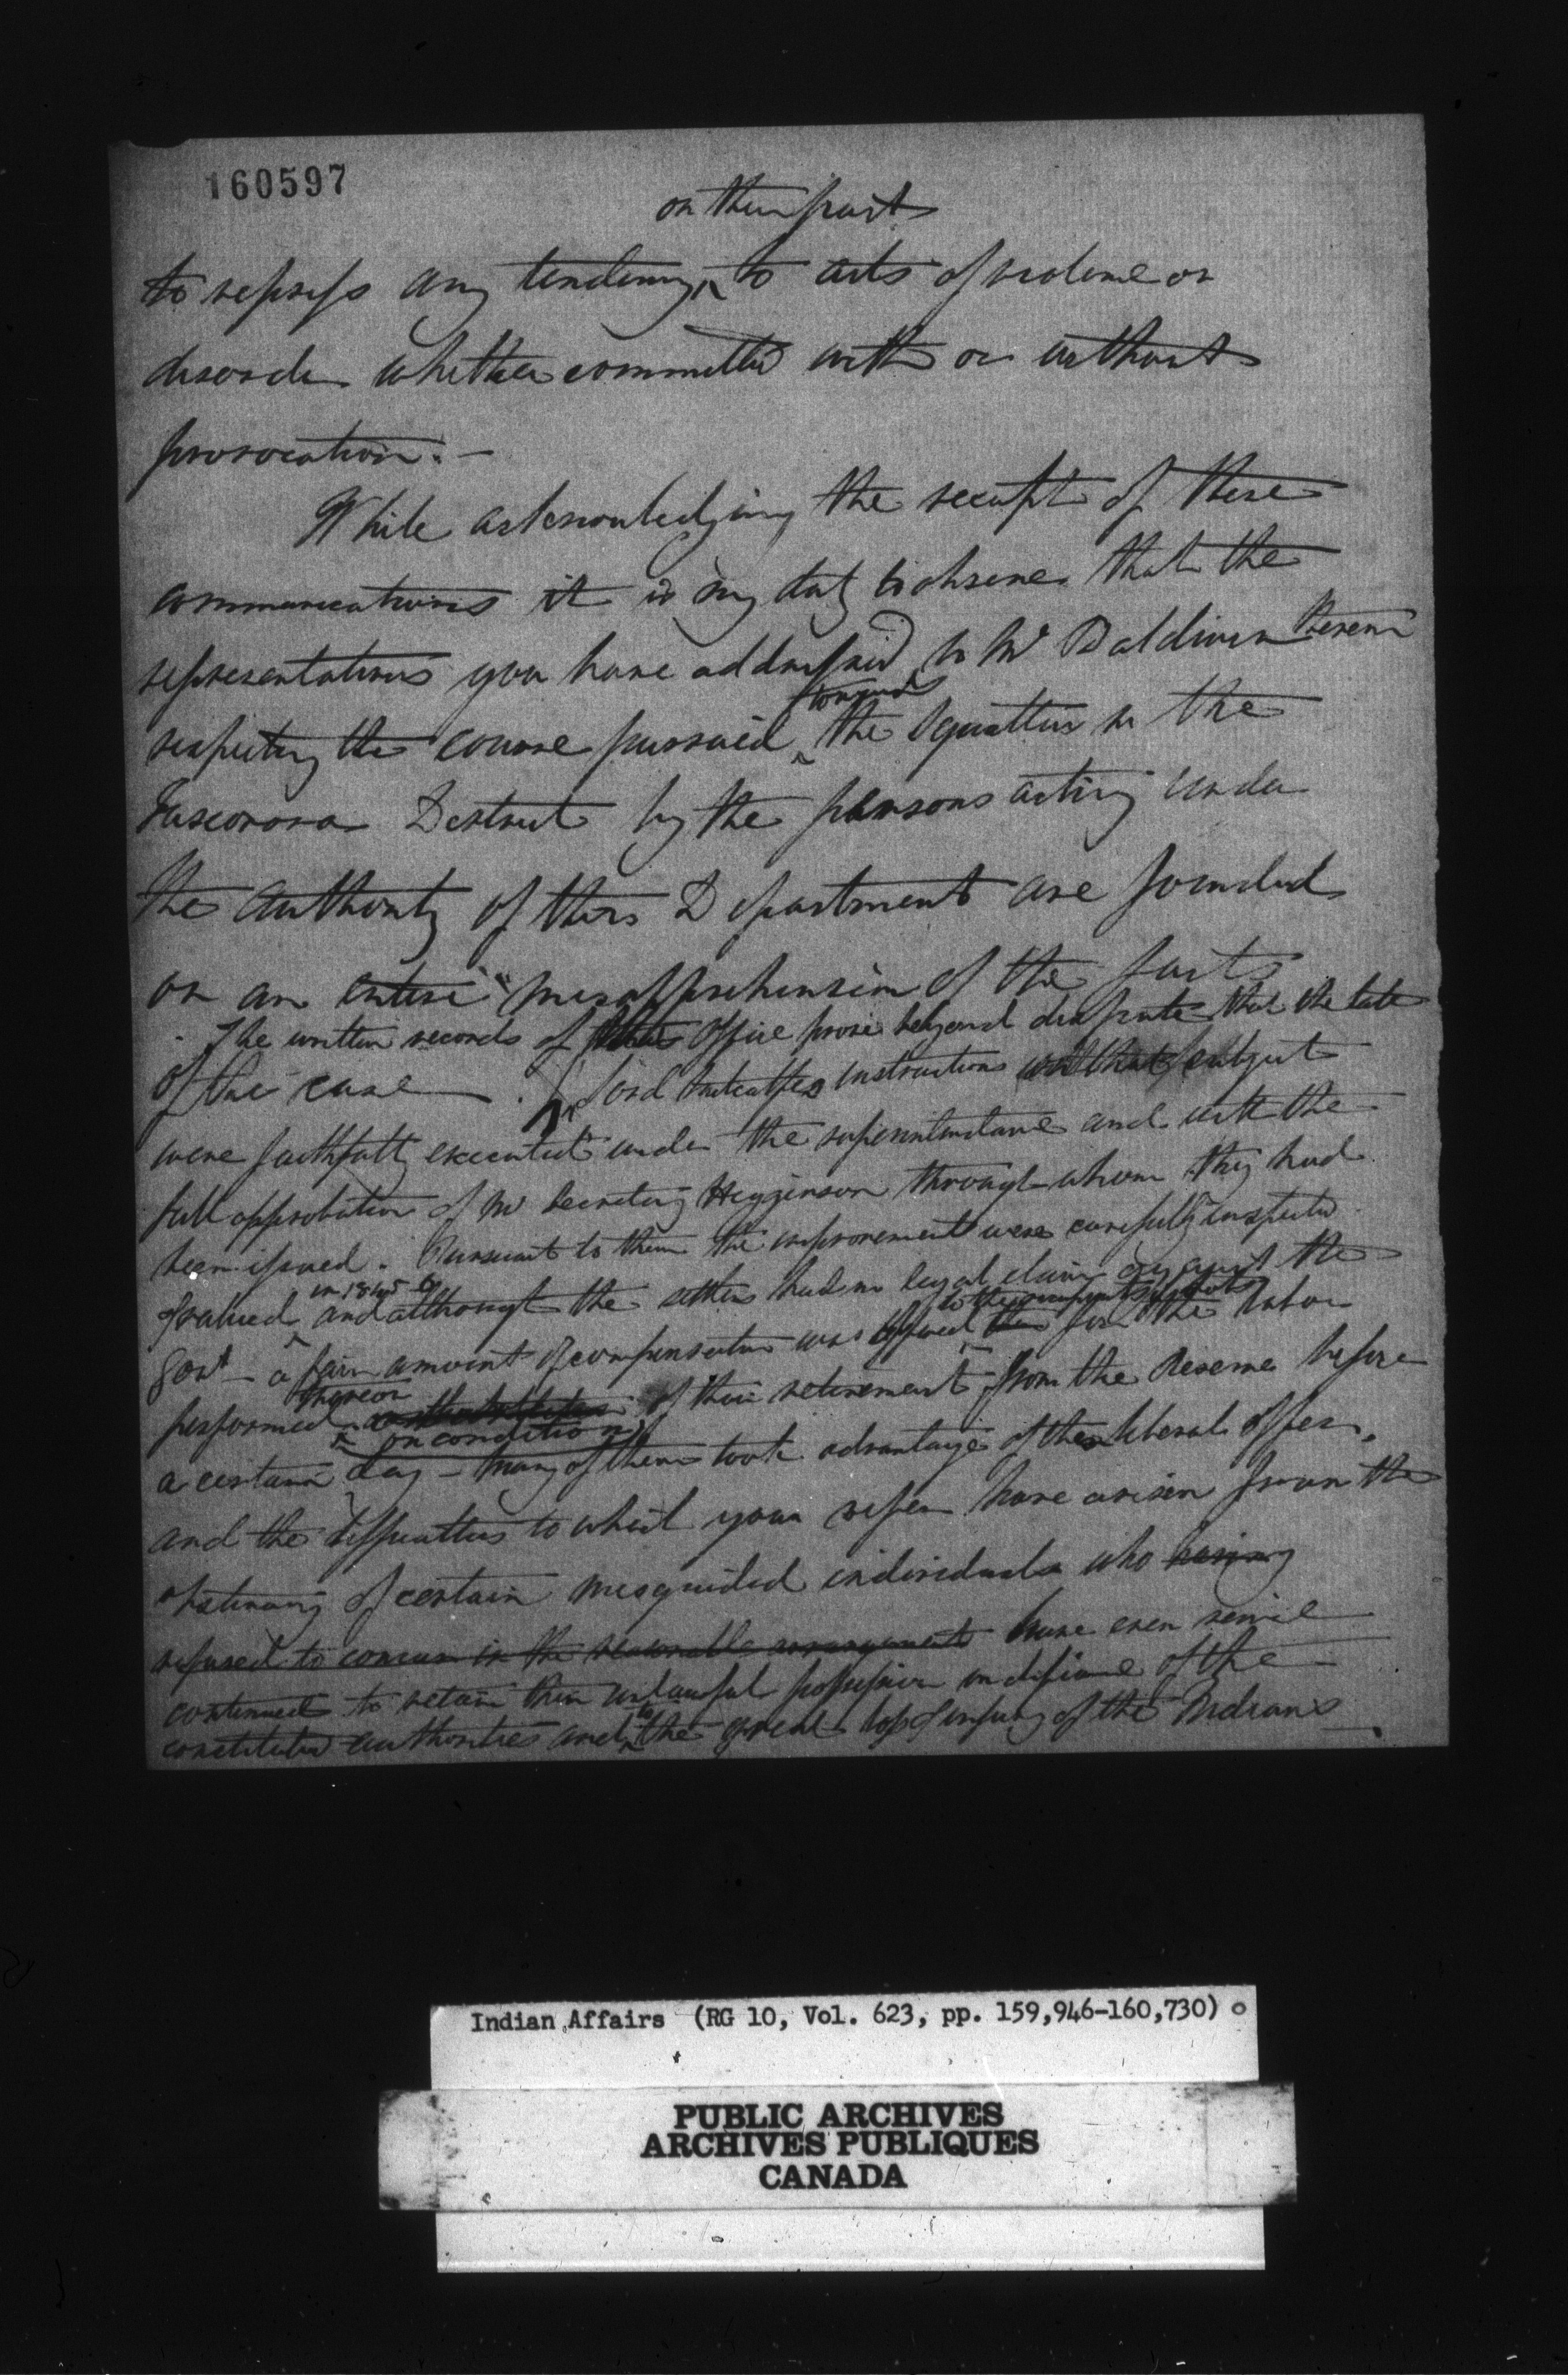 160597
on their part
to repress any tendency to acts of violence or
disorder whether committed with or without
provocation. —
While acknowledging the receipt of these
communications it is my duty to observe that the
representations you have addressed to Mr Baldwin therein
towards
respecting the course pursued the Squatters in the
Tuscorora District by the persons acting under
the authority of this Department are founded
on an entire misapprehension of the facts
The written records of this Office prove beyond dispute that the late
of the case — . Lord Metcalfe's instructions on that subject
were faithfully executed under the superintendance and with the
full approbation of Mr Secretary Higginson through whom they had
been issued. Pursuant to them the improvements were carefully inspected
in 1845-6
& valued and although the settlers had no legal claim against the
to the occupants
Govt — a fair amount of compensation was offered for the labor
thereon
performed of their retirement from the Reserve before
on condition
a certain day — many of them took advantage of the liberal offer,
and the difficulties to which you refer have arisen from the
obstinacy of certain misguided individuals who having
refused to concur in the reasonable arrangement have ever since
continued to retain their unlawful possession in defiance of the
to
constituted authorities and the great loss & injury of the Indians
Indian Affairs (RG 10, Vol. 623, pp. 159,946-160,730)
PUBLIC ARCHIVES
ARCHIVES PUBLIQUES
CANADA